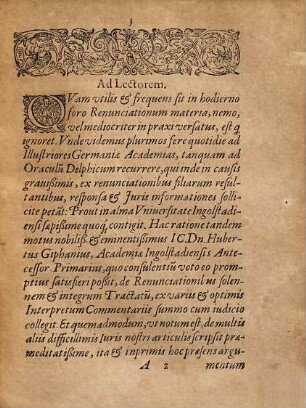 3
Ad Lectorem.
QVam vtilis & frequens sit in hodierno
foro Renunciationum materia, nemo,
vel mediocriter in praxi versatus, est q
ignoret. Vnde videmus plurimos fere quotidie ad
Illustriores Germaniæ Academias, tanquam ad
Oraculū Delphicum recurrere, qui inde in causis
grauissimis, ex renunciationibus filiarum resul-
tantibus, responsa & Iuris informationes solli-
cite petāt: Prout in alma Vniuersitate Ingolstadi-
ensi sæpissime quoq; contigit. Hac ratione tandem
motus nobiliss. & eminentissimus IC. Dn. Huber
tus Giphanius, Academiæ Ingolstadiensis Ante-
cessor Primarius, quo consulentiū voto eo prom-
ptius satisfieri posset, de Renunciationibus solen-
nem & integrum Tractatū, ex variis & optimis
Interpretum Commentariis summo cum iudicio
collegit. Et quemadmodum, vt notum est, de multis
aliis difficillimis Iuris nostri articulis scripsit præ-
meditatissime, ita & inprimis hoc præsens argu-
A 2 mentum